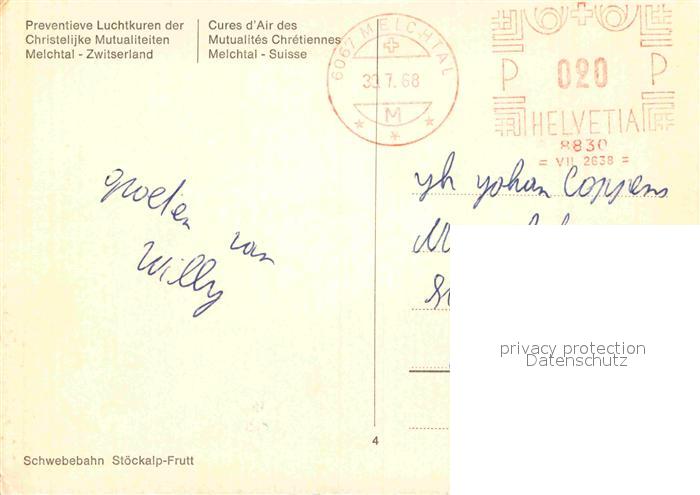 Preventieve Luchtkuren der
Christelijke Mutualiteiten
Melchtal - Zwitserland
Cures d'Air des
Mutualités Chrétiennes
Melchtal - Suisse
6067 MELCHTAL
30.7.68
M
P 020 P
HELVETIA
8830
= VII. 2638 =
groeten van
Willy
yh yohan Coppens
privacy protection
Datenschutz
4
Schwebebahn Stöckalp-Frutt